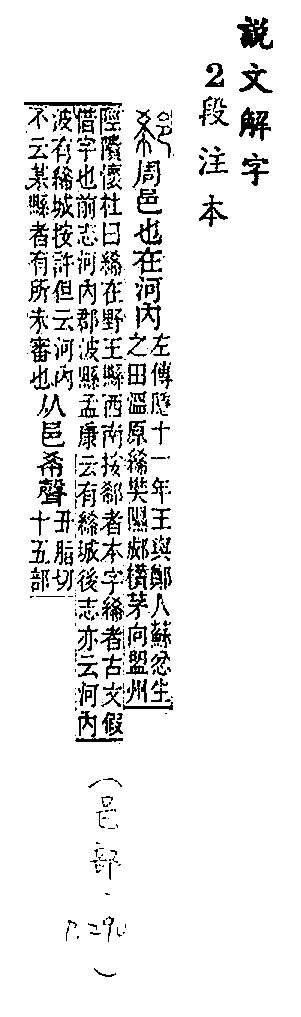 說文解字
2段注本
周邑也在河內
左傳隱十一年王與鄭人蘇忿生
之田溫原絺樊隰郕欑茅向盟州
陘隤懷杜曰絺在野王縣西南按郗者本字絺者古文假
借字也前志河內郡波縣孟康云有絺城後志亦云河內
波有絺城按許但云河內
不云某縣者有所未審也
从邑希聲
丑脂切
十五部
（邑部．P.290）